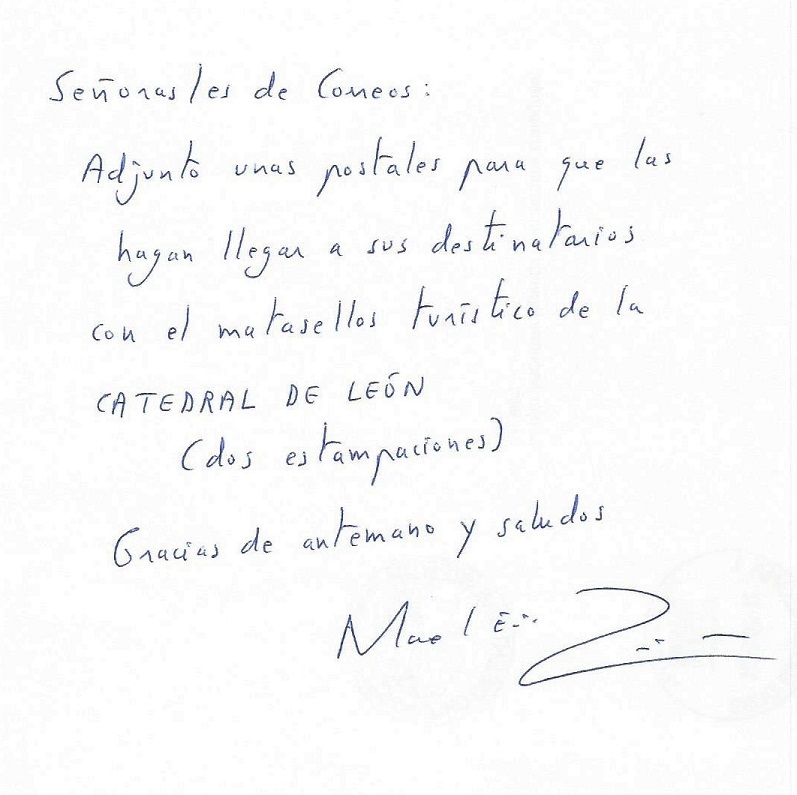 Señoras/es de Correos:
Adjunto unas postales para que las
hagan llegar a sus destinatarios
con el matasellos turístico de la
CATEDRAL DE LEÓN
(dos estampaciones)
Gracias de antemano y saludos